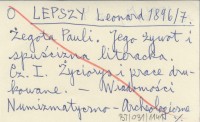 O LEPSZY Leonard 1896/7.
Żegota Pauli. Jego żywot i
spuścizna literacka.
Cz. I. Życiorys i prace dru-
kowane. — Wiadomości
Numizmatyczno - Archeologiczne